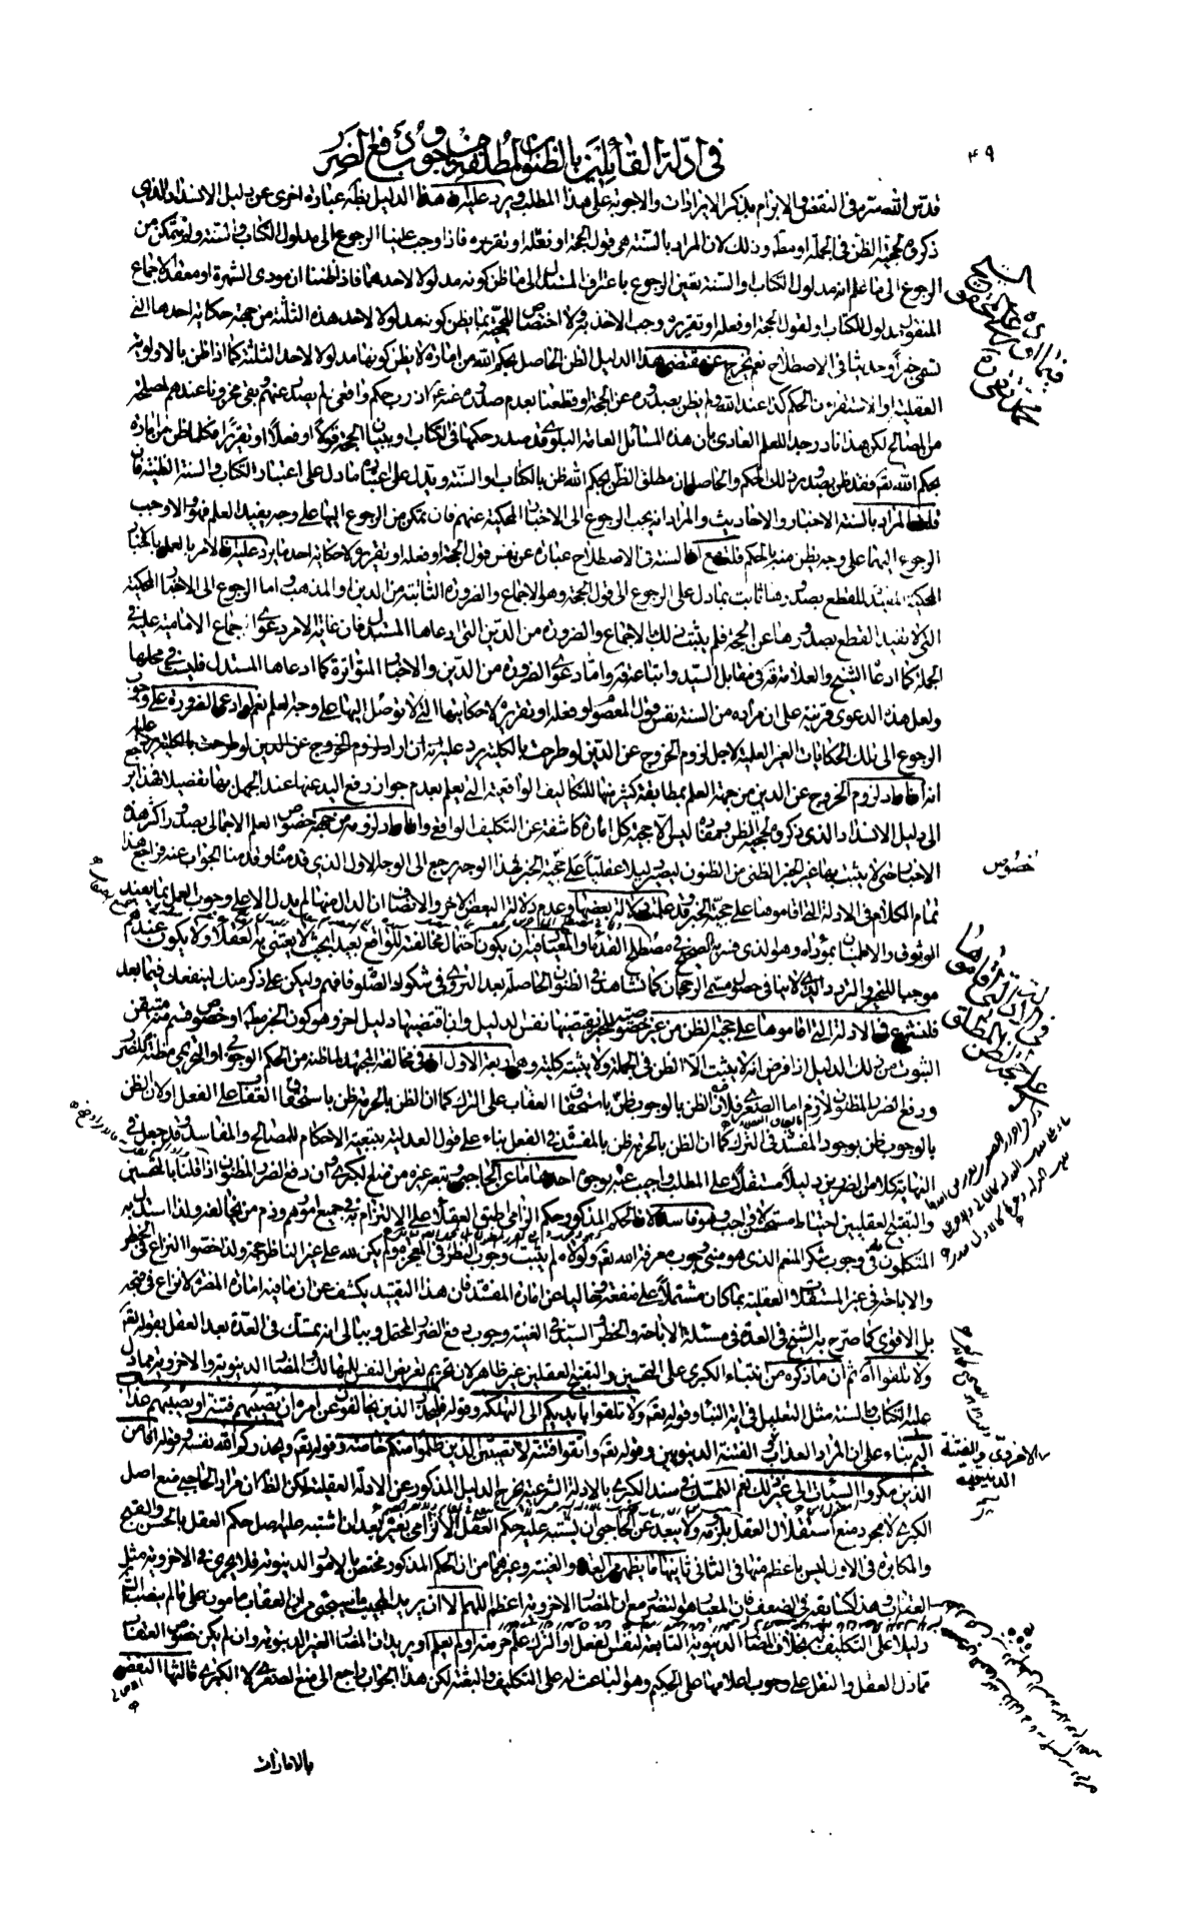 ٤٩
في ادلة القائلين بالظنون المطلقة من وجوب دفع الضرر
قدس الله سره في النقض والابرام بذكر الايرادات والاجوبة على هذا المطلب ويرد عليه ان هذا الدليل بظاهره عبارة اخرى عن دليل الانسداد الذي
ذكروه لحجية الظن في الجملة او مطلقا وذلك لان المراد بالسنة هي قول الحجة او فعله او تقريره فاذا وجب علينا الرجوع الى مدلول الكتاب والسنة ولم نتمكن من
الرجوع الى ما علم انه مدلول الكتاب او السنة تعين الرجوع باعتراف المستدل الى ما ظن كونه مدلولا لاحدهما فاذا ظننا ان مؤدى الشهرة او معقد الاجماع
المنقول مدلول للكتاب او لقول الحجة او فعله او تقريره وجب الاخذ به ولا اختصاص للحجية بما يظن كونه مدلولا لاحد هذه الثلثة من جهة حكاية احدها التي
تسمى خبرا وحديثا في الاصطلاح نعم يخرج عن مقتضى هذا الدليل الظن الحاصل بحكم الله من امارة لا يظن كونها مدلولا لاحد الثلثة كما اذا ظن بالاولوية
العقلية او الاستقراء ان الحكم كذا عند الله ولم يظن بصدوره عن الحجة او قطعنا بعدم صدوره عنه ع اذ رب حكم واقعي لم يصدر عنهم وبقى مخزونا عندهم لمصلحة
من المصالح لكن هذا نادر جدا للعلم العادي بان هذه المسائل العامة البلوى قد صدر حكمها في الكتاب او ببيان الحجة قولا او فعلا او تقريرا فكلما ظن من امارة
بحكم الله تعم فقد ظن بصدور ذلك الحكم والحاصل ان مطلق الظن بحكم الله ظن بالكتاب او السنة ويدل على اعتباره ما دل على اعتبار الكتاب والسنة الظنية فان
قلت المراد بالسنة الاخبار والاحاديث والمراد انه يجب الرجوع الى الاخبار المحكية عنهم فان تمكن من الرجوع اليها على وجه يفيد العلم فهو والا وجب
الرجوع اليها على وجه يظن منه بالحكم قلت مع ان السنة في الاصطلاح عبارة عن نفس قول الحجة او فعله او تقريره لا حكاية احدها يرد عليه ان الامر بالعمل بالاخبار
المحكية المفيدة للقطع بصدورها ثابت بما دل على الرجوع الى قول الحجة وهو الاجماع والضرورة الثابتة من الدين او المذهب واما الرجوع الى الاخبار المحكية
التي لا تفيد القطع بصدورها عن الحجة فلم يثبت ذلك بالاجماع والضرورة من الدين التي ادعاها المستدل فان غاية الامر دعوى اجماع الامامية عليه في
الجملة كما ادعاه الشيخ والعلامة قده في مقابل السيد واتباعه قده واما دعوى الضرورة من الدين والاخبار المتواترة كما ادعاها المستدل فليست في محلها
ولعل هذه الدعوى قرينة على ان مراده من السنة نفس قول المعصوم او فعله او تقريره لا حكايتها التي لا توصل اليها على وجه العلم نعم لو ادعى الضرورة على وجوب
الرجوع الى تلك الحكايات الغير العلمية لاجل لزوم الخروج عن الدين لو طرحت بالكلية يرد عليه
انه ان اراد لزوم الخروج عن الدين من جهة العلم بمطابقة كثير منها للتكاليف الواقعية التي يعلم بعدم جواز رفع اليد عنها عند الجهل بها تفصيلا فهذا يرجع
الى دليل الانسداد الذي ذكروه لحجية الظن ومفاده ليس الا حجية كل امارة كاشفة عن التكليف الواقعي وان اراد لزومه من جهة خصوص العلم الاجمالي بصدور اكثر هذه
خصوص
الاخبار حتى لا يثبت به غير الخبر الظني من الظنون ليصير دليلا عقليا على حجية الخبر فهذا الوجه يرجع الى الوجه الاول الذي قدمناه وقدمنا الجواب عنه فراجع هذا
تمام الكلام في الادلة التي اقاموها على حجية الخبر وقد علمت دلالة بعضها وعدم دلالة البعض الاخر والانصاف ان الدال منها لم يدل الا على وجوب العمل بما يفيد
الوثوق والاطمينان بمؤداه وهو الذي فسر به الصحيح في مصطلح القدماء والمعيار فيه ان يكون احتمال مخالفته للواقع بعيدا بحيث لا يعتني به العقلاء ولا يكون عندهم
موجبا للتحير والتردد الذي لا ينافي حصول مسمى الرجحان كما نشاهد في الظنون الحاصلة بعد التروي في شكوك الصلوة فافهم وليكن على ذكر منك لينفعك فيما بعد
فلنشرع في الادلة التي اقاموها على حجية الظن من غير خصوصية للخبر يقتضيها نفس الدليل وان اقتضاها دليل اخر وهو كون الخبر مطلقا او خصوص قسم منه متيقن
الثبوت من ذلك الدليل اذا فرض انه لا يثبت الا الظن في الجملة ولا يثبته كلية وهي اربعة الاول ان في مخالفة المجتهد لما ظنه من الحكم الوجوبي او التحريمي مظنة للضرر
ودفع الضرر المظنون لازم اما الصغرى فلان الظن بالوجوب ظن باستحقاق العقاب على الترك كما ان الظن بالحرمة ظن باستحقاق العقاب على الفعل او لان الظن
بالوجوب ظن بوجود المفسدة في الترك كما ان الظن بالحرمة ظن بالمفسدة في الفعل بناء على قول العدلية بتبعية الاحكام للمصالح والمفاسد وقد جعل في
النهاية كلا من الضررين دليلا مستقلا على المطلب واجيب عنه بوجوه احدها ما عن الحاجبي وتبعه غيره من منع الكبرى وان دفع الضرر المظنون اذا قلنا بالتحسين
والتقبيح العقليين احتياط مستحسن لا واجب وهو فاسد لان الحكم المذكور حكم الزامي اطبق العقلاء على الالتزام به في جميع امورهم وذم من يخالفه ولذا استدل به
المتكلمون في وجوب شكر المنعم الذي هو مبنى وجوب معرفة الله تعم ولولاه لم يثبت وجوب النظر في المعجزة ولم يكن لله على غير الناظر حجة ولذا خصوا النزاع في الحظر
والاباحة في غير المستقلات العقلية بما كان مشتملا على منفعة وخاليا عن امارة المفسدة فان هذا التقييد يكشف عن ان ما فيه امارة المضرة لا نزاع في قبحه
بل الاقوى كما صرح به الشيخ في العدة في مسئلة الاباحة والحظر والسيد في الغنية وجوب دفع الضرر المحتمل وببالي انه تمسك في العدة بعد العقل بقوله تعم
ولا تلقوا آه ثم ان ما ذكره من ابتناء الكبرى على التحسين والتقبيح العقليين غير ظاهر لان تحريم تعريض النفس للمهالك والمضار الدنيوية والاخروية مما دل
عليه الكتاب والسنة مثل التعليل في اية النبأ وقوله تعم ولا تلقوا بايديكم الى التهلكة وقوله فليحذر الذين يخالفون عن امره ان تصيبهم فتنة او يصيبهم عذاب
اليم بناء على ان المراد العذاب والفتنة الدينويين وقوله تعم واتقوا فتنة لا تصيبن الذين ظلموا منكم خاصة وقوله تعم ويحذركم الله نفسه وقوله افامن
الذين مكروا السيئات الى غير ذلك نعم التمسك في سند الكبرى بالادلة الشرعية يخرج الدليل المذكور عن الادلة العقلية لكن الظ ان مراد الحاجبي منع اصل
الكبرى لا مجرد منع استقلال العقل بلزومه ولا يبعد عن الحاجبي ان يشتبه عليه حكم العقل الالزامي بغيره بعد ان اشتبه عليه اصل حكم العقل بالحسن والقبح
والمكابرة في الاول ليس باعظم منها في الثاني ثانيها ما يظهر من العدة والغنية وغيرهما من ان الحكم المذكور مختص بالامور الدنيوية فلا يجري في الاخروية مثل
العقاب وهذا كسابقه في الضعف فان المعيار هو التضرر مع ان المضار الاخروية اعظم اللهم الا ان يريد المجيب ما سيجيء من ان العقاب مأمون على ما لم ينصب الشارع
دليلا على التكليف به بخلاف المضار الدنيوية التابعة لنفس الفعل او الترك علم حرمته او لم يعلم او يريد ان المضار الغير الدنيوية وان لم يكن خصوص العقاب
مما دل العقل والنقل على وجوب اعلامها على الحكيم وهو الباعث له على التكليف والبعثة لكن هذا الجواب راجع الى منع الصغرى لا الكبرى ثالثها النقض
بالامارات